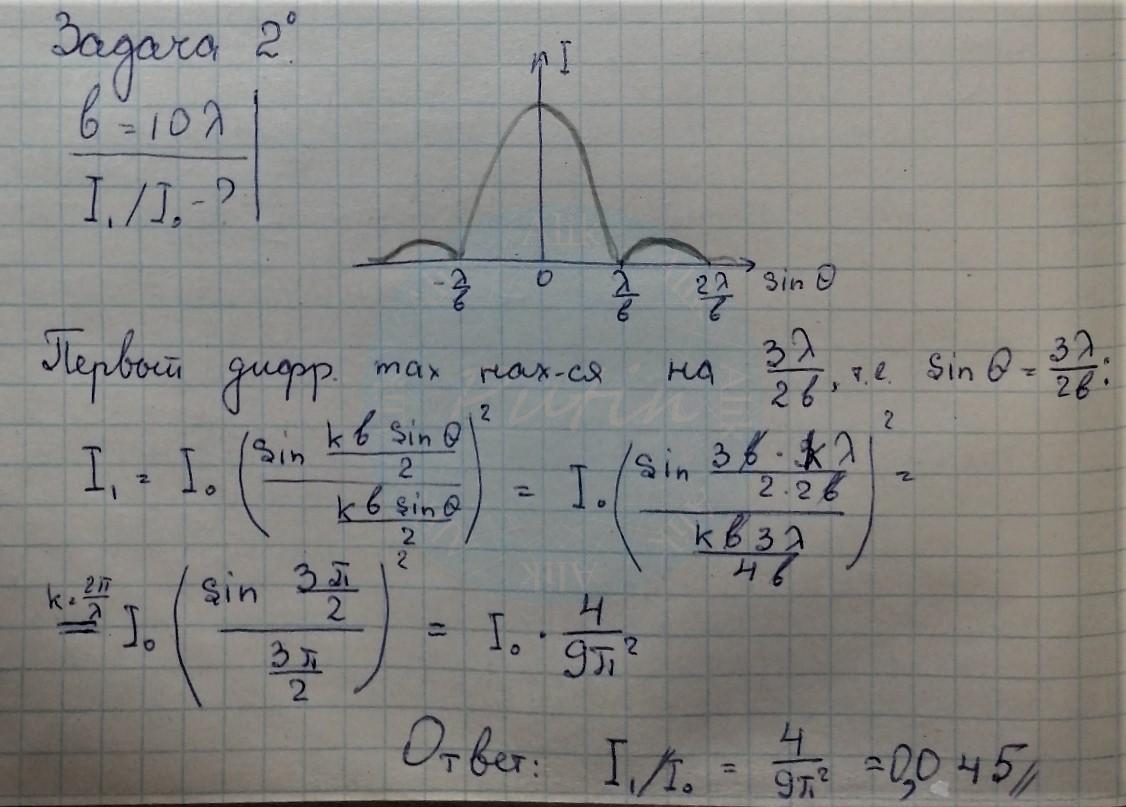 Задача 2°.
b = 10 λ
I₁/I₀ - ?
I
-λ/b 0 λ/b 2λ/b sin θ
Первый дифр. max нах-ся на 3λ/2b, т.е. sin θ = 3λ/2b:
I₁ = I₀ (sin (k b sin θ / 2) / (k b sin θ / 2))² = I₀ (sin (3 b · k λ / 2·2b) / (k b 3 λ / 4b))² =
k = 2π/λ = I₀ (sin (3π/2) / (3π/2))² = I₀ · 4/9π²
Ответ: I₁/I₀ = 4/9π² = 0,045